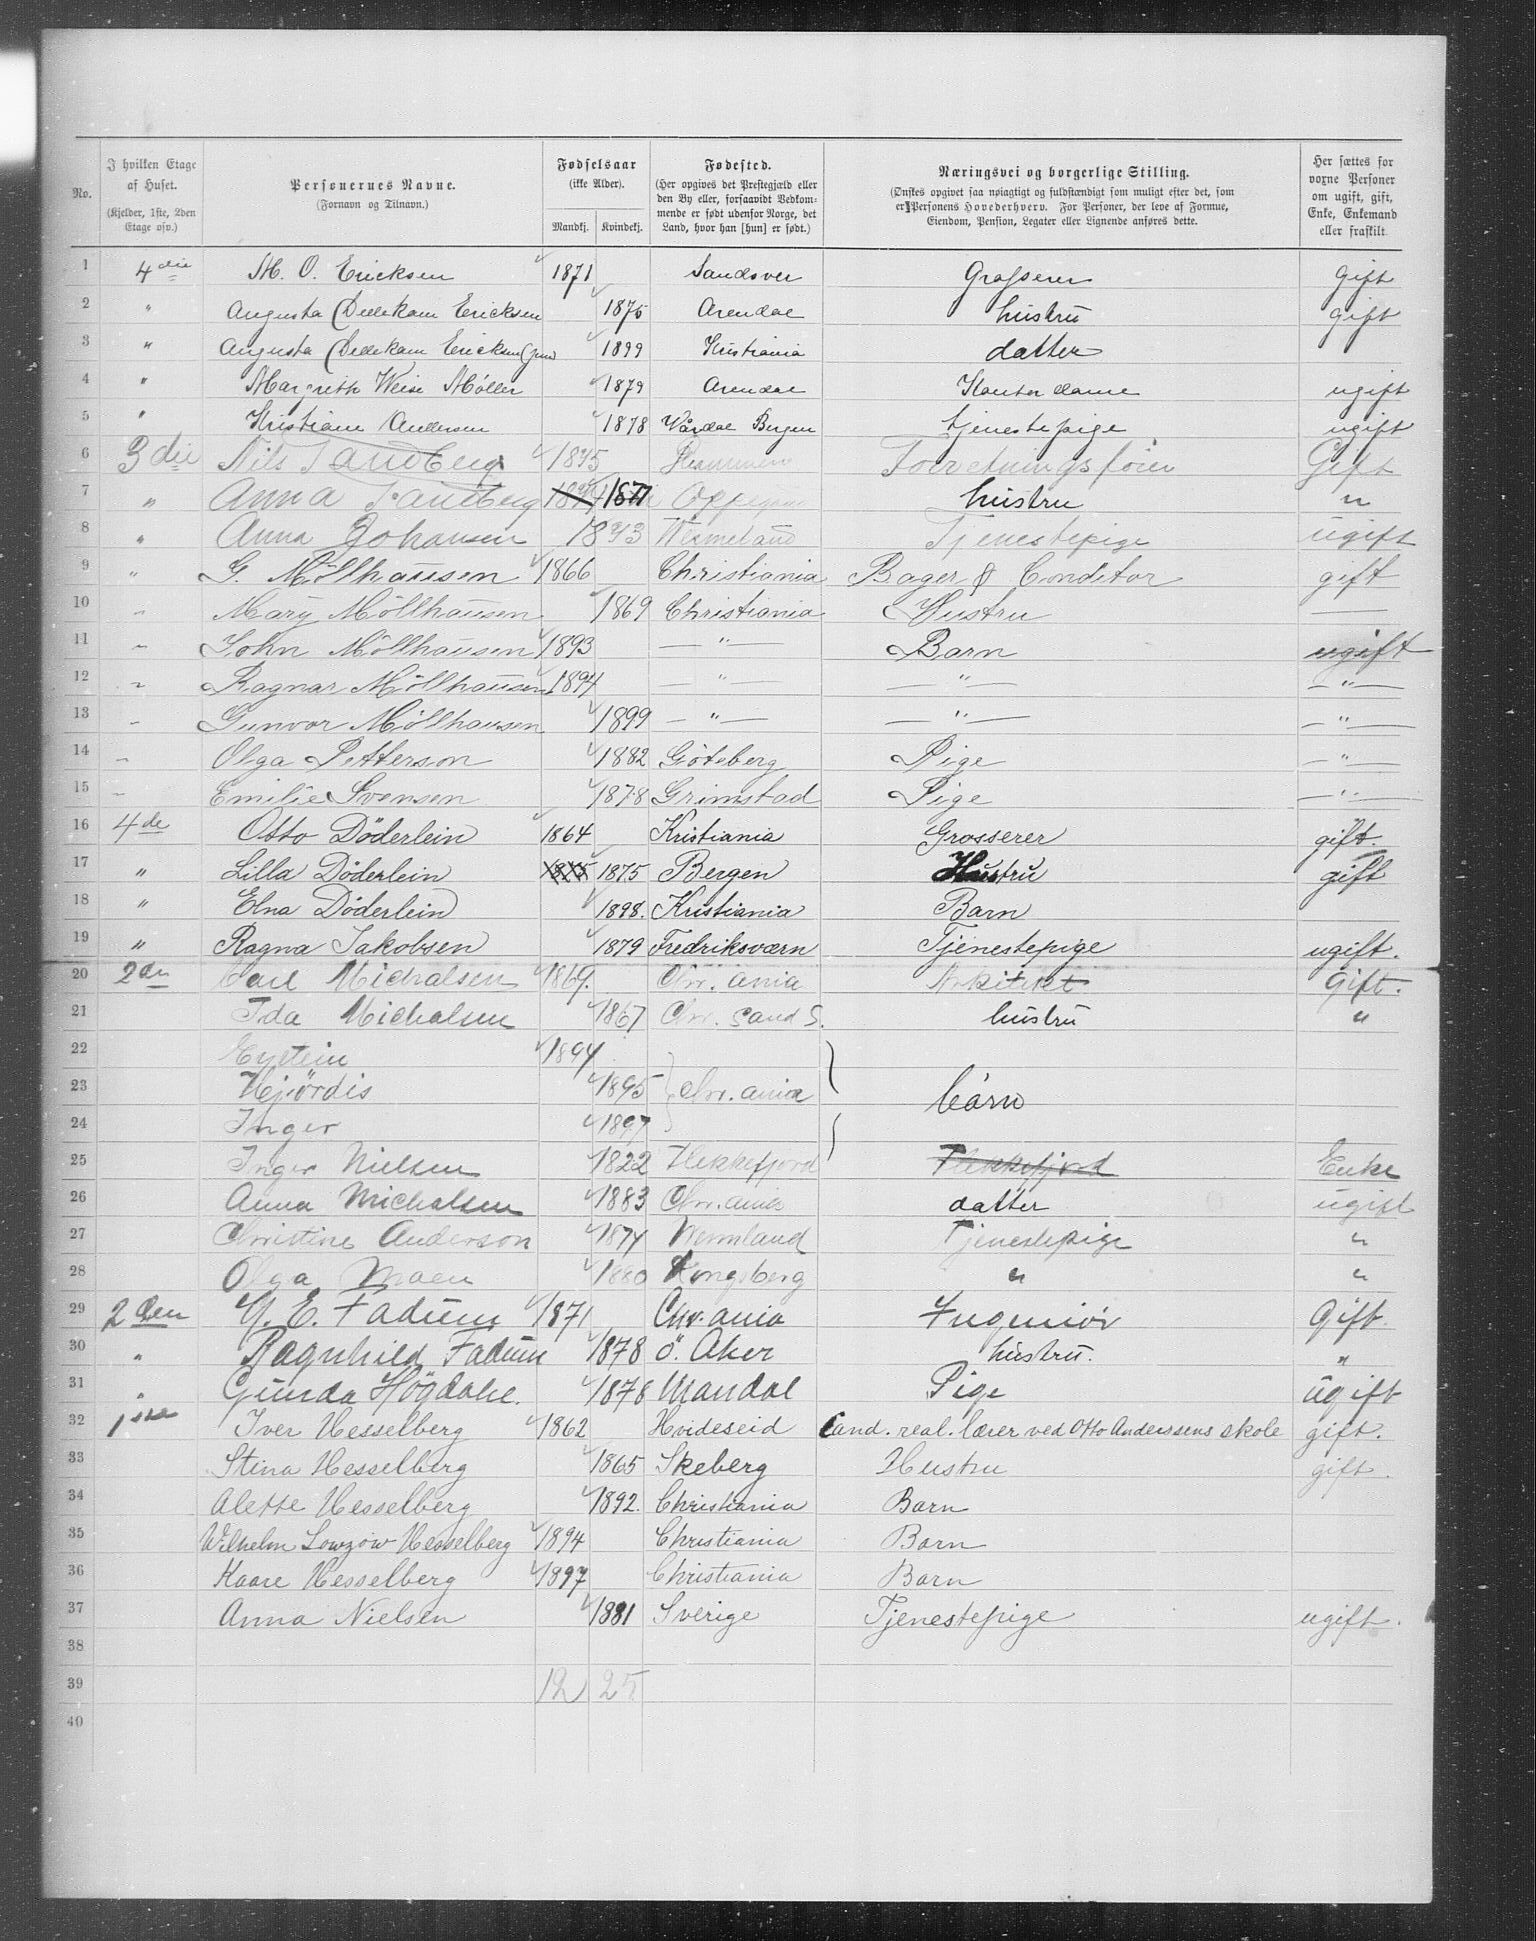 No.
I hvilken Etage af Huset. (Kjelder, 1ste, 2den Etage osv.)
Personernes Navne. (Fornavn og Tilnavn.)
Fødselsaar (ikke Alder). Mandkj. Kvindekj.
Fødested. (Her opgives det Prestegjæld eller den By eller, forsaavidt Vedkommende er født udenfor Norge, det Land, hvor han [hun] er født.)
Næringsvei og borgerlige Stilling. (Ønskes opgivet saa nøiagtigt og fuldstændigt som muligt efter det, som er Personens Hovederhverv. For Personer, der leve af Formue, Eiendom, Pension, Legater eller Lignende anføres dette.
Her sættes for voxne Personer om ugift, gift, Enke, Enkemand eller fraskilt.
1 4die M. O. Ericksen 1871 Sandsver Grosserer gift
2 " Augusta (Dedekam Ericksen 1875 Arendal hustru gift
3 " Augusta (Dedekam Ericksen (jun) 1899 Kristiania datter
4 " Margrethe Weise Møller 1879 Arendal Kontor dame ugift
5 " Kristiane Andersen 1878 Bergen tjenestepige ugift
6 3die Nils Sandberg 1875 Forretningsfører Gift
7 " Anna Sandberg 1877 Oppegaard hustru "
8 " Anna Johansen 1873 Wermeland Tjenestepige ugift
9 " G. Möllhausen 1866 Christiania Bager & Conditor gift
10 " Mary Möllhausen 1869 Christiania Hustru —
11 " John Möllhausen 1893 — " — Barn ugift
12 " Ragnar Möllhausen 1894 — " — — " — — " —
13 " Gunvor Möllhausen 1899 — " — — " — — " —
14 " Olga Petterson 1882 Göteberg Pige — " —
15 " Emilie Svensen 1878 Grimstad Pige — " —
16 4de Otto Döderlein 1864 Kristiania Grosserer gift.
17 " Lilla Döderlein 1875 1875 Bergen Hustru gift
18 " Elna Döderlein 1898. Kristiania Barn
19 " Ragna Jakobsen 1879 Fredriksværn Tjenestepige ugift.
20 2den Carl Michalsen 1869. Chr. ania Arkitekt Gift.
21 Ida Michalsen 1867 Chr. sand S. hustru "
22 Eystein 1894
23 Hjördis 1895 Chr. ania börn
24 Inger 1897
25 Inger Nielsen 1822 Flekkefjord Flekkefjord Enke
26 Anna Michalsen 1883 Chr. ania datter ugift
27 Christine Anderson 1874 Wermland Tjenestepige "
28 Olga Moen 1880 Kongsberg " "
29 2den E. Fadum 1871 Chr. ania Ingeniör Gift.
30 " Ragnhild Fadum 1878 ö. Aker hustru. "
31 " Gunda Högdahl. 1878 Mandal Pige ugift
32 1ste Iver Hesselberg 1862 Hvideseid Cand. real. lærer ved Otto Anderssens skole gift.
33 Stina Hesselberg 1865 Skeberg Hustru gift.
34 Alette Hesselberg 1892. Christiania Barn
35 Wilhelm Lowzow Hesselberg 1894 Christiania Barn
36 Kaare Hesselberg 1897 Christiania Barn
37 Anna Nielsen 1881 Sverige Tjenestepige ugift.
38
39 12 25
40